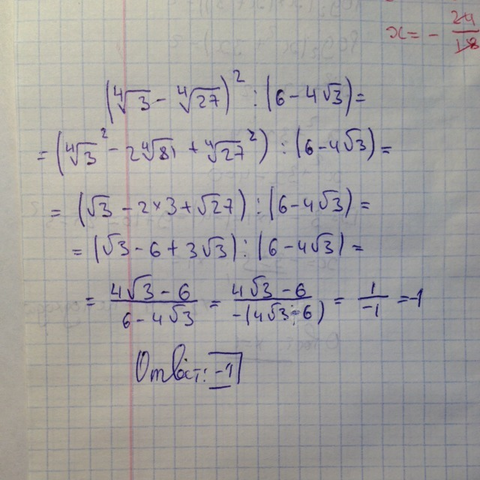 x = - 24/18
(∜3 - ∜27)² : (6 - 4√3) =
= (∜3² - 2∜81 + ∜27²) : (6 - 4√3) =
= (√3 - 2×3 + √27) : (6 - 4√3) =
= (√3 - 6 + 3√3) : (6 - 4√3) =
= (4√3 - 6)/(6 - 4√3) = (4√3 - 6)/(-(4√3 - 6)) = 1/-1 = -1
Ответ: -1